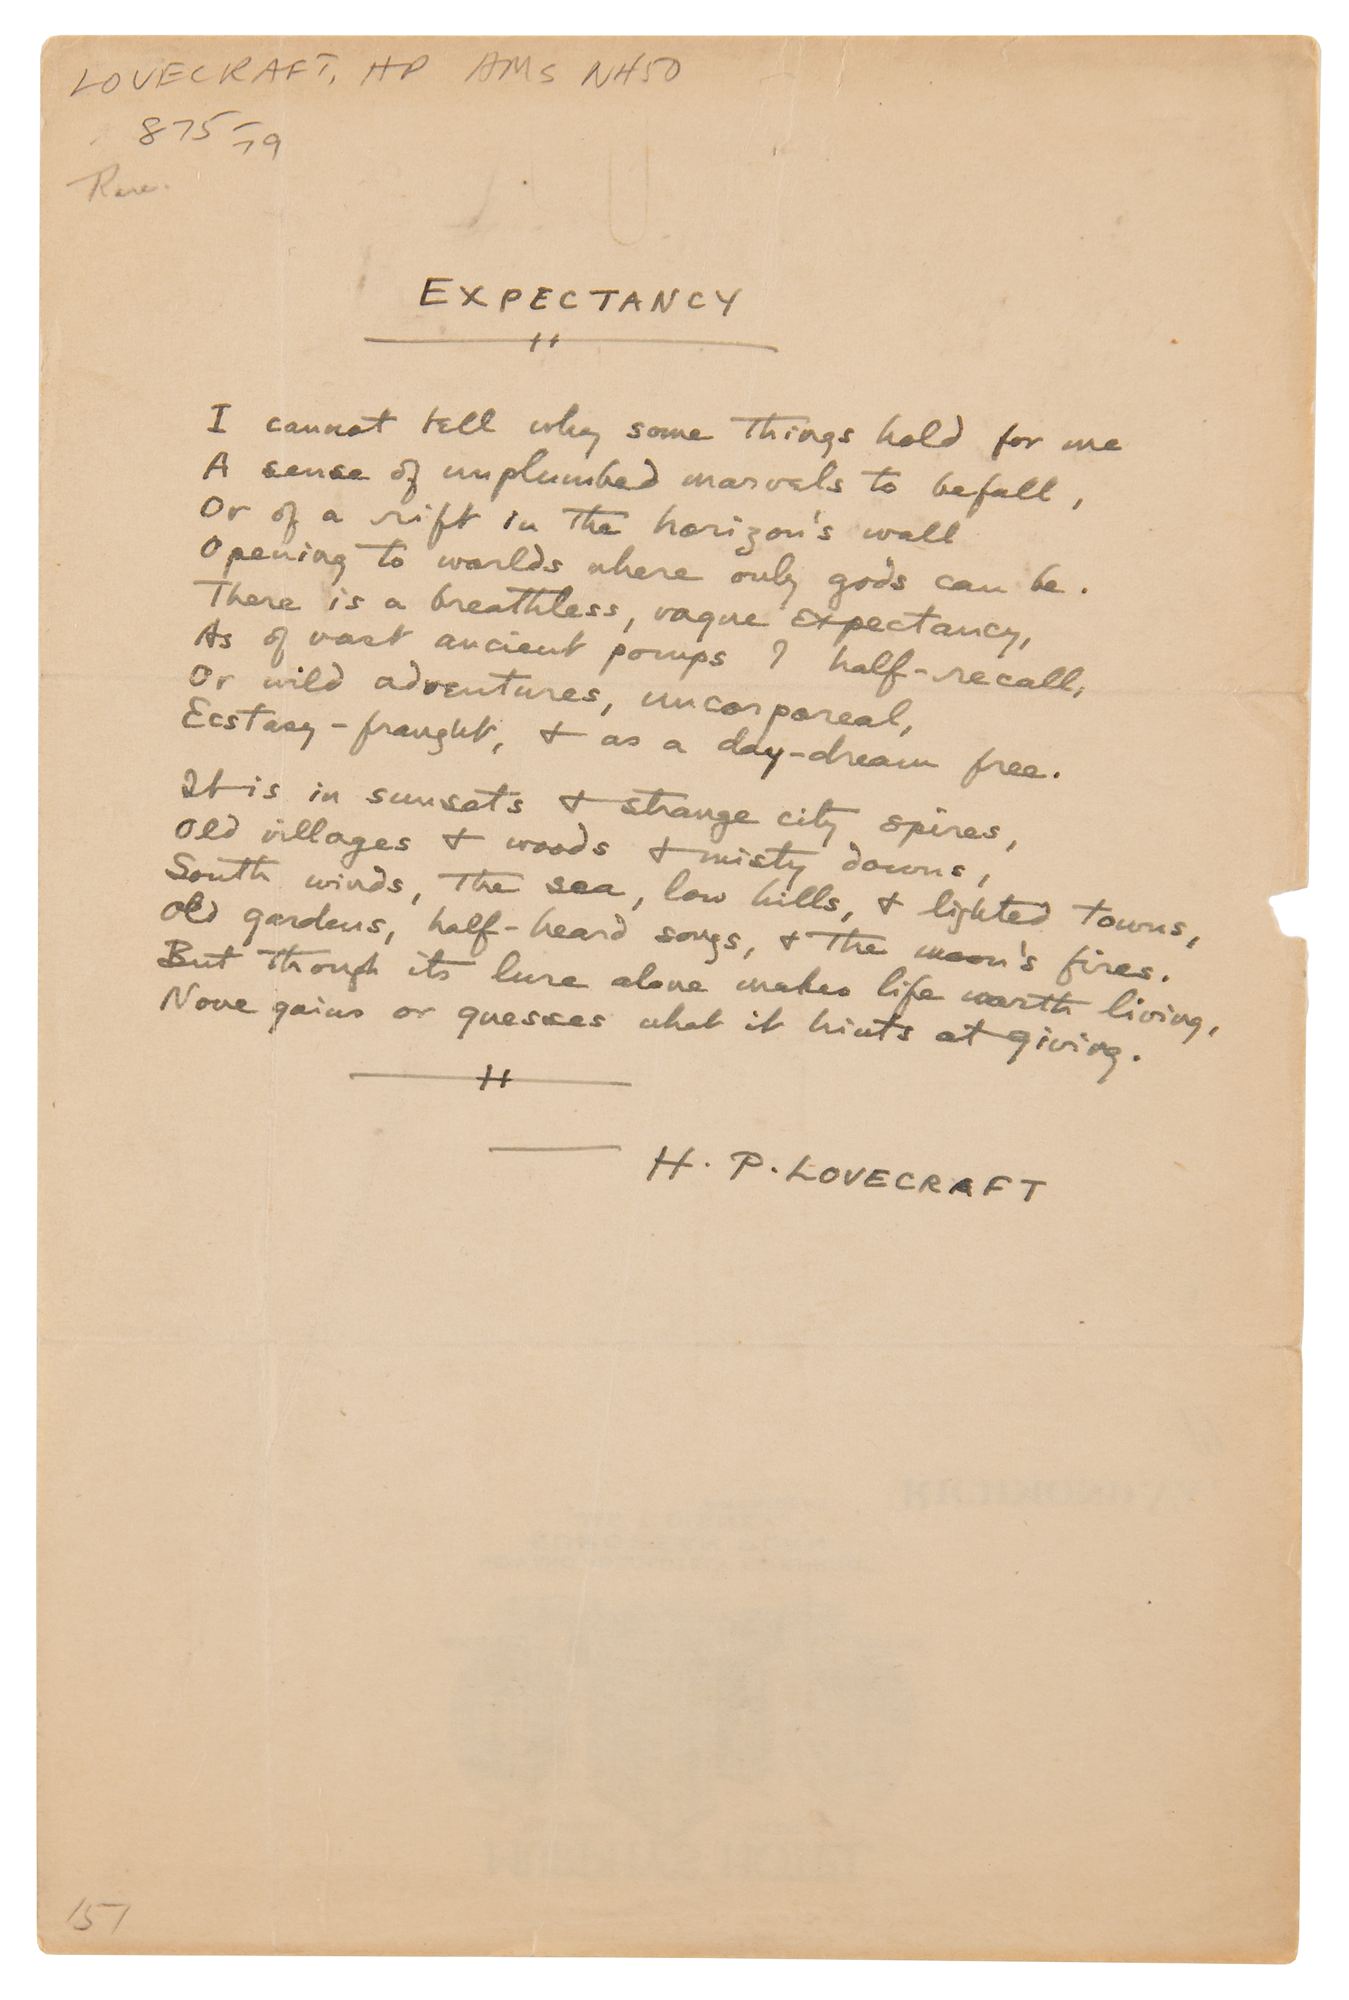 LOVECRAFT, HP AMS NH50
875 79
Rare.
EXPECTANCY
I cannot tell why some things hold for me
A sense of unplumbed marvels to befall,
Or of a rift in the horizon's wall
Opening to worlds where only gods can be.
There is a breathless, vague expectancy,
As of vast ancient pomps I half-recall,
Or wild adventures, uncorporeal,
Ecstasy-fraught, & as a day-dream free.
It is in sunsets & strange city spires,
Old villages & woods & misty downs,
South winds, the sea, low hills, & lighted towns,
Old gardens, half-heard songs, & the moon's fires.
But though its lure alone makes life worth living,
None gains or guesses what it hints at giving.
H. P. LOVECRAFT
157